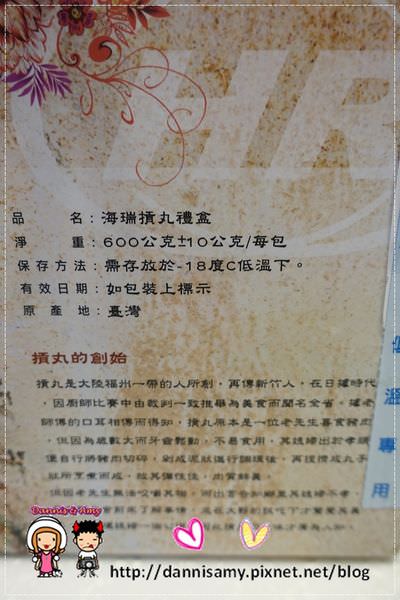 HR
品　　名：海瑞摃丸禮盒
淨　　重：600公克±10公克/每包
保存方法：需存放於-18度C低溫下。
有效日期：如包裝上標示
原 產 地：臺灣
溫專用
摃丸的創始
摃丸是大陸福州一帶的人所創，再傳新竹人，在日據時代
，因廚師比賽中由裁判一致推舉為美食而聞名全省。據老
師傅的口耳相傳而得知，摃丸原本是一位老先生喜食豬肉
，但因為歲數大而牙齒鬆動，不易食用，其媳婦出於孝順
Danni&Amy
http://dannisamy.pixnet.net/blog